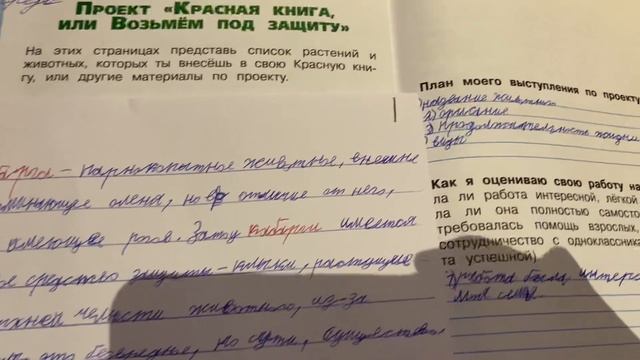 Проект «Красная книга,
или Возьмём под защиту»
На этих страницах представь список растений и
животных, которых ты внесёшь в свою Красную кни-
гу, или другие материалы по проекту.
– парнокопытное животное, внешне
оленя, но в отличие от него,
рогов. Зато кабарги имеется
средство защиты – клыки, растущие
челюсти животного, из-за
это безобидное, но сути, существо
План моего выступления по проекту
название животного
2) описание
3) продолжительность жизни
виды
Как я оцениваю свою работу на
ла ли работа интересной, лёгкой
ла ли она полностью самосто
требовалась помощь взрослых,
сотрудничество с одноклассника
та успешной)
работа была интерес